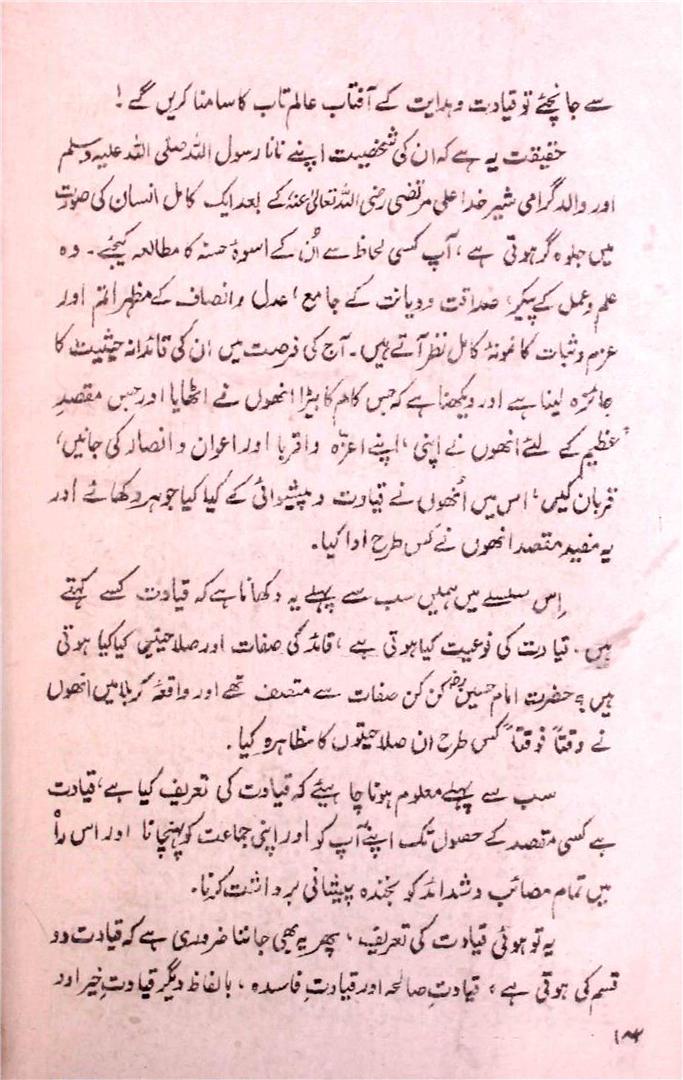 سے جانچئے تو قیادت و ہدایت کے آفتاب عالم تاب کا سامنا کریں گے !
حقیقت یہ ہے کہ ان کی شخصیت اپنے نانا رسول اللہ صلی اللہ علیہ وسلم
اور والد گرامی شیر خدا علی مرتضیٰ رضی اللہ تعالیٰ عنہٗ کے بعد ایک کامل انسان کی صورت
میں جلوہ گر ہوتی ہے ، آپ کسی لحاظ سے اُن کے اسوۂ حسنہ کا مطالعہ کیجئے ۔ وہ
علم و عمل کے پیکر ، صداقت و دیانت کے جامع ، عدل و انصاف کے مظہر اتم اور
عزم و ثبات کا نمونۂ کامل نظر آتے ہیں ۔ آج کی فرصت میں ان کی قائدانہ حیثیت کا
جائزہ لینا ہے اور دیکھنا ہے کہ جس کام کا بیڑا انھوں نے اٹھایا اور جس مقصدِ
عظیم کے لئے انھوں نے اپنی ، اپنے اعزہ و اقربا اور اعوان و انصار کی جانیں ،
قربان کیں ، اس میں اُنھوں نے قیادت و پیشوائی کے کیا کیا جوہر دکھائے اور
یہ مفید مقصد انھوں نے کس طرح ادا کیا ۔
اِس سلسلے میں ہمیں سب سے پہلے یہ دکھانا ہے کہ قیادت کسے کہتے
ہیں . قیادت کی نوعیت کیا ہوتی ہے ، قائد کی صفات اور صلاحیتیں کیا کیا ہوتی
ہیں ؟ حضرت امام حسین رضؓ کن کن صفات سے متصف تھے اور واقعۂ کربلا میں انھوں
نے وقتاً فوقتاً کس طرح ان صلاحیتوں کا مظاہرہ کیا .
سب سے پہلے معلوم ہونا چاہیئے کہ قیادت کی تعریف کیا ہے ، قیادت
ہے کسی مقصد کے حصول تک اپنے آپ کو اور اپنی جماعت کو پہنچانا اور اس راہ
میں تمام مصائب و شدائد کو بخندہ پیشانی برداشت کرنا ۔
یہ تو ہوئی قیادت کی تعریف ، پھر یہ بھی جاننا ضروری ہے کہ قیادت دو
قسم کی ہوتی ہے ، قیادتِ صالحہ اور قیادتِ فاسدہ ، بالفاظ دیگر قیادتِ خیر اور